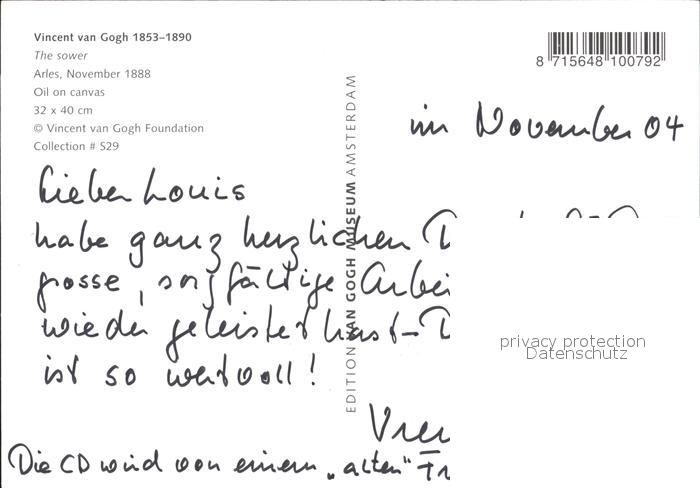 Vincent van Gogh 1853–1890
The sower
Arles, November 1888
Oil on canvas
32 x 40 cm
© Vincent van Gogh Foundation
Collection # S29
EDITION VAN GOGH MUSEUM AMSTERDAM
8 715648 100792
im November 04
Lieber Louis
habe ganz herzlichen
grosse, sorgfältige Arbei
wieder geleistet hast–
ist so wertvoll!
Vren
Die CD wird von einem „alten“ Fr
privacy protection
Datenschutz